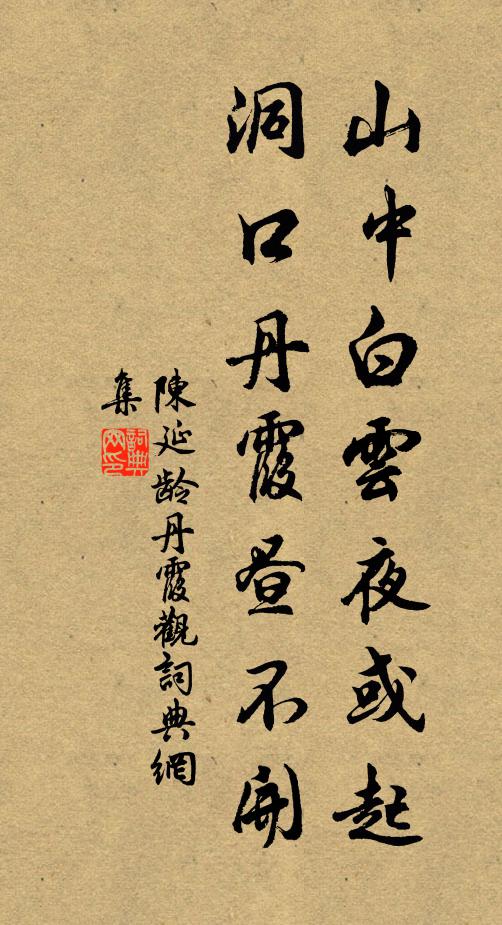 山中白雲夜或起
洞口丹霞昼不開
陳延齡丹霞觀詞典網
集
詞典網印